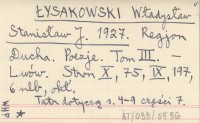 ŁYSAKOWSKI Władysław
Stanisław J. 1927. Regjon
Ducha. Poezje. Tom III. —
Lwów. Stron X, 75, IX, 197,
6 nlb, okł.
Tatr dotyczą s. 4-9 części 7.
WHP
bT/098/0596